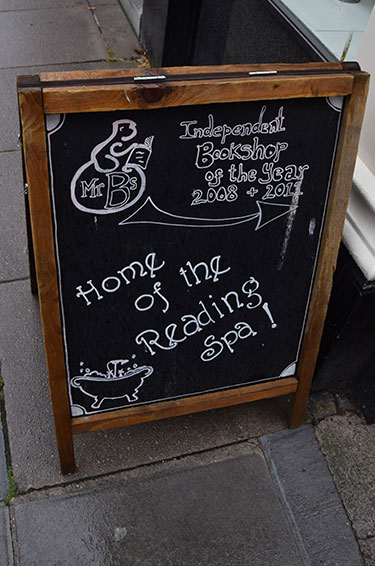 Mr Bs
Independent
Bookshop
of the Year
2008 + 2011
Home of the
Reading
Spa!